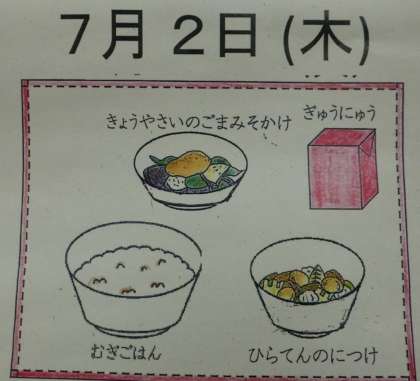 7月2日(木)
きょうやさいのごまみそかけ
ぎゅうにゅう
むぎごはん
ひらてんのにつけ